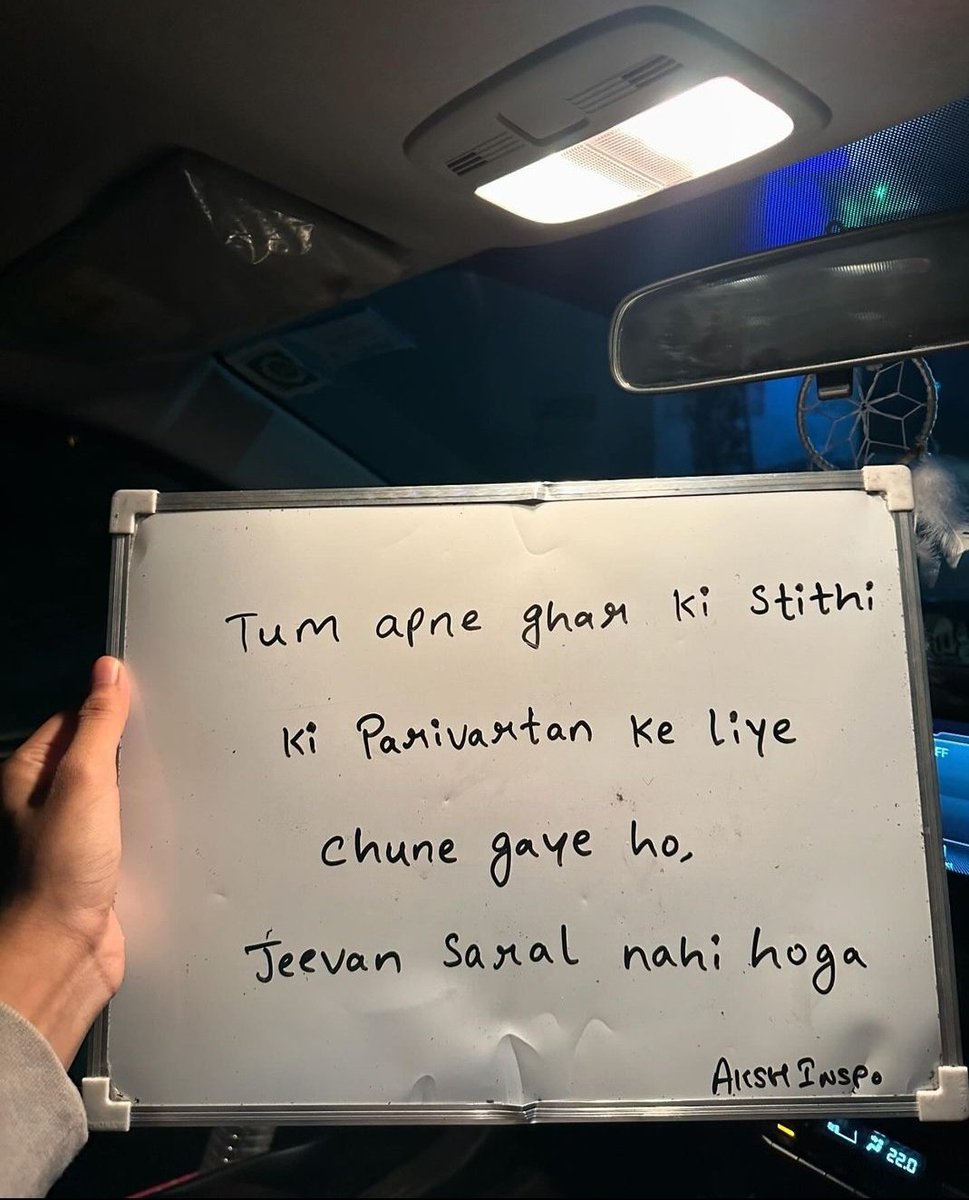 Tum apne ghar ki stithi
ki Parivartan ke liye
chune gaye ho,
Jeevan saral nahi hoga
AKSH INSPO
FF
22.0